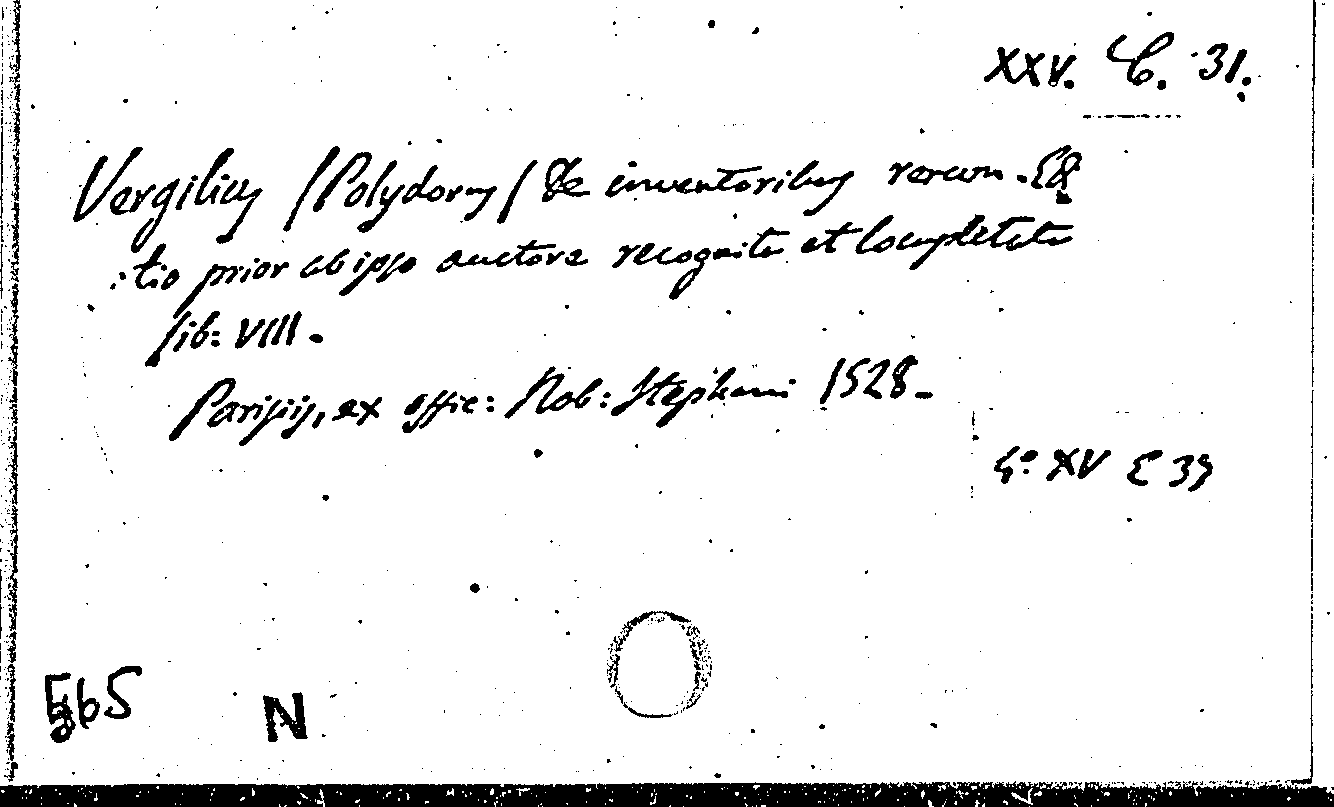 XXV. C. 31.
Vergilius /Polydorus/ De inventoribus rerum. Edi
:tio prior ab ipso auctore recognita et locupletata
lib: VIII.
Parisijs, ex offic: Rob: Stephani 1528.
4º XV E 39
565
N